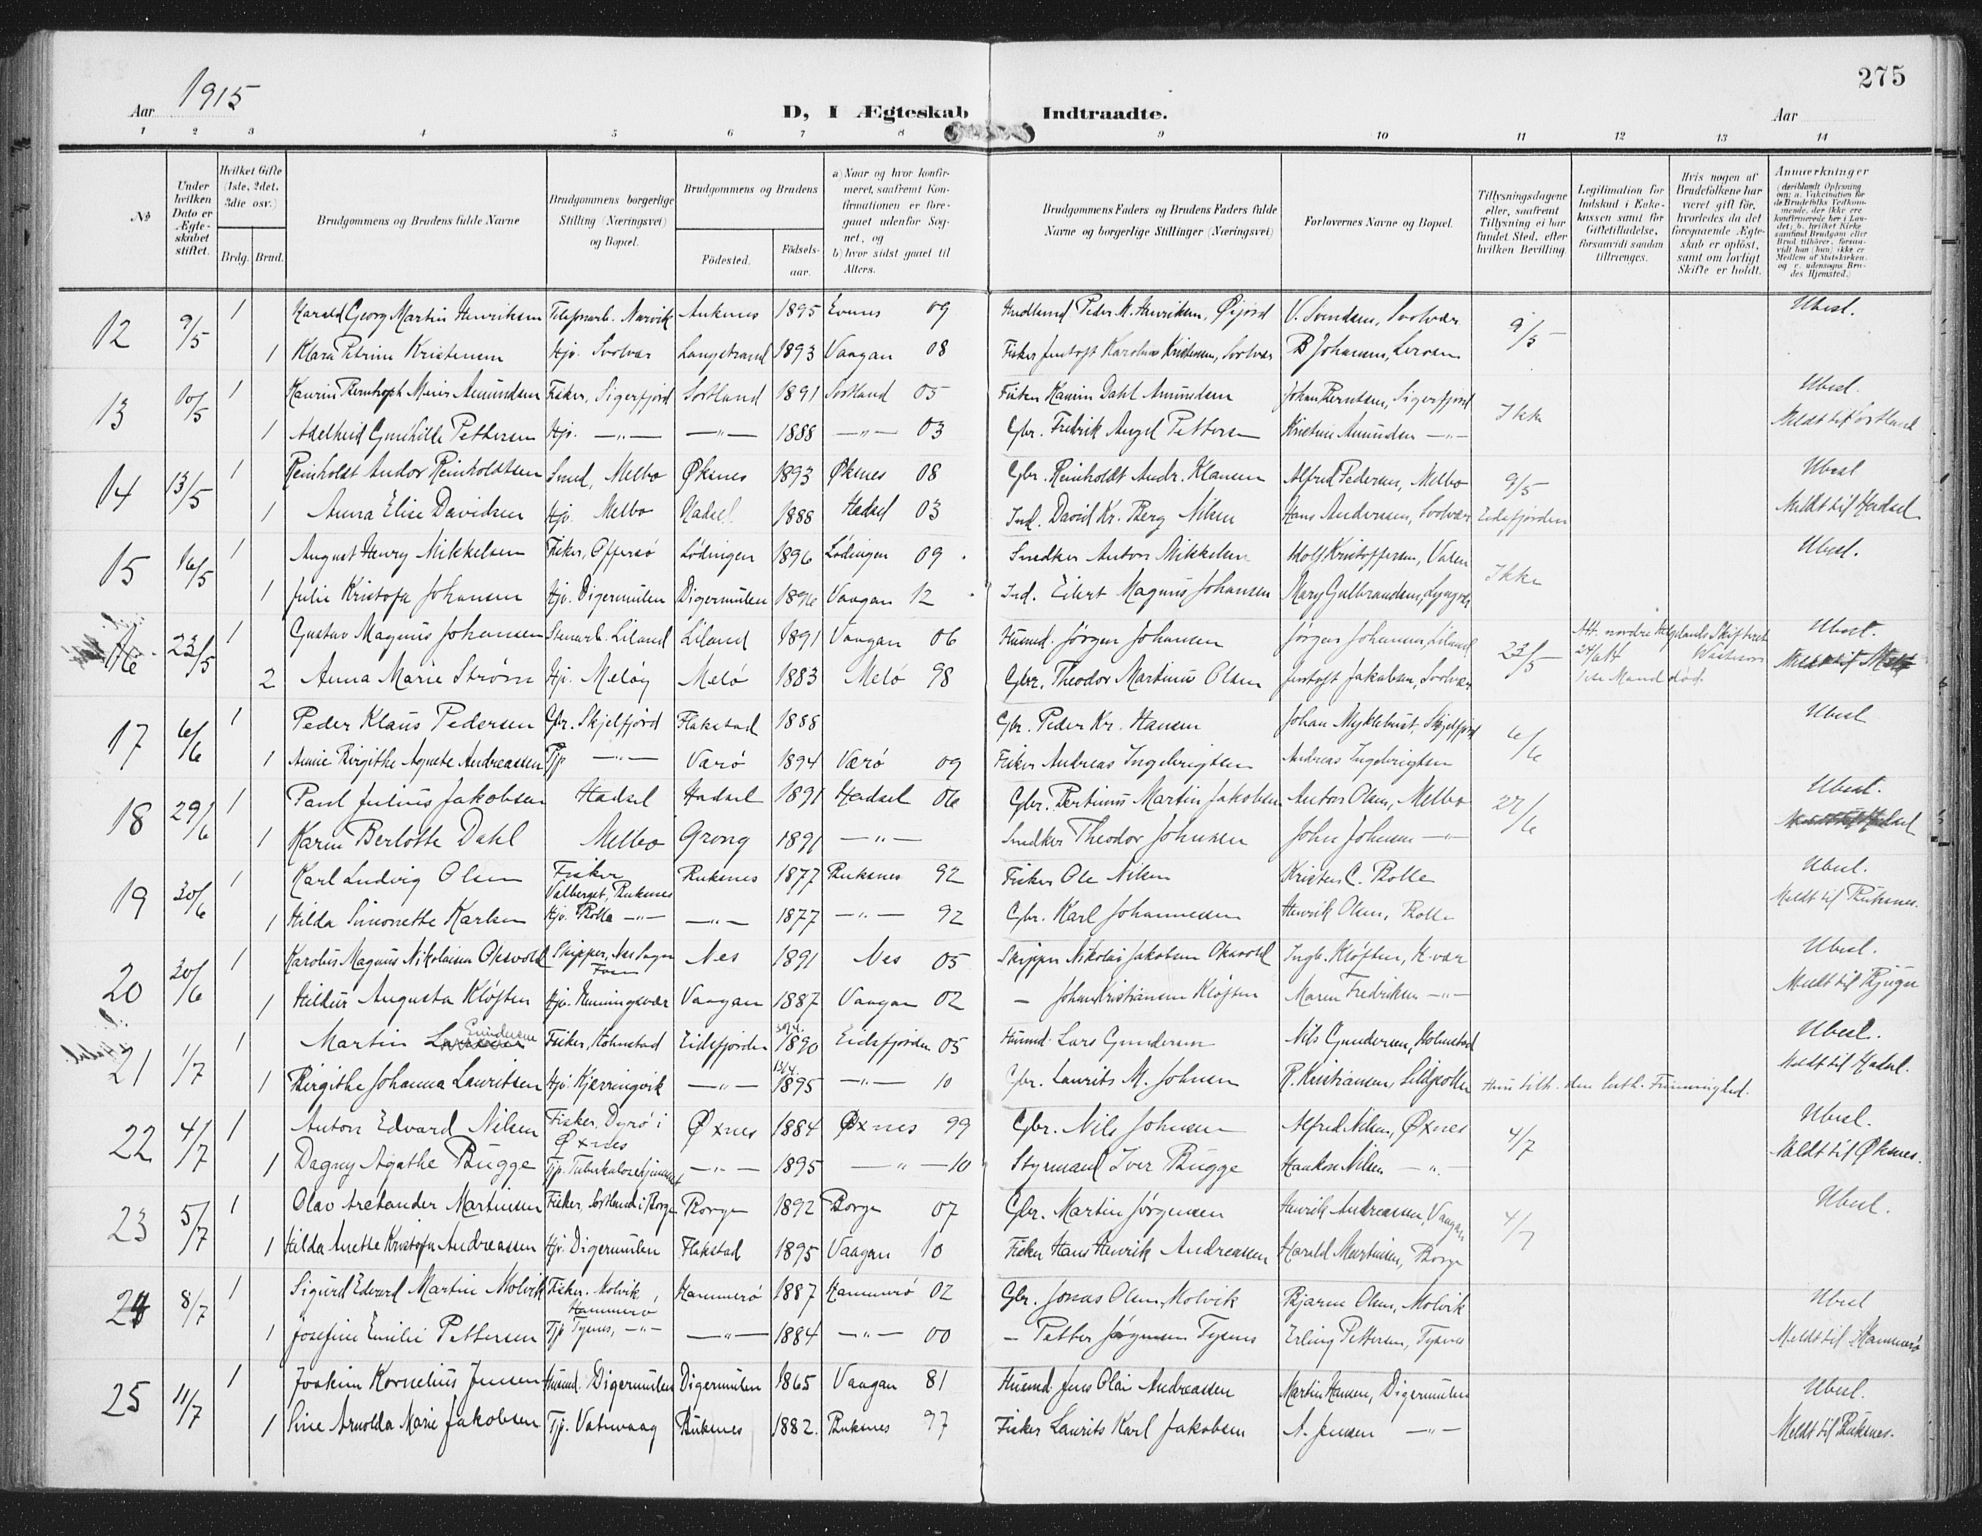 275
Aar 1915
D, I Ægteskab Indtraadte.
Aar
1 2 3 4 5 6 7 8 9 10 11 12 13 14
№
Under hvilken Dato er Ægteskabet stiftet.
Hvilket Gifte (1ste, 2det, 3die osv.)
Brdg. Brud.
Brudgommens og Brudens fulde Navne
Brudgommens borgerlige Stilling (Næringsvei) og Bopæl.
Brudgommens og Brudens
Fødested.
Fødselsaar.
a) Naar og hvor konfirmeret, saafremt Konfirmationen er foregaaet udenfor Sognet, og
b) hvor sidst gaaet til Alters.
Brudgommens Faders og Brudens Faders fulde Navne og borgerlige Stillinger (Næringsvei)
Forlovernes Navne og Bopæl.
Tillysningsdagene eller, saafremt Tillysning ei har fundet Sted, efter hvilken Bevilling
Legitimation for Indskud i Enkekassen samt for Giftetilladelse, forsaavidt saadan tiltrænges.
Hvis nogen af Brudefolkene har været gift før, hvorledes da det foregaaende Ægteskab er opløst, samt om lovligt Skifte er holdt.
Anmærkninger
12 9/5 1 Harald Georg Martin Henriksen Telefonarb. Narvik Ankenes 1895 Evenes 09 Peder M. Henriksen, Øijord V. Svendsen, Svolvær 9/5 Ubesl.
1 Klara Petrine Kristensen Hjv. Svolvær Langstrand 1893 Vaagan 08 Fisker Jentoft Karolius Kristensen, Svolvær B Johansen, Leroen
13 10/5 1 Amundsen Fisker, Sigerfjord Sortland 1891 Sortland 05 Fisker Dahl Amundsen Johan Berntsen, Sigerfjord Ikke Ubesl.
1 Adelheid Gunhilde Pettersen Hjv. —"— —"— 1888 —"— 03 Gbr. Fredrik Angel Pettersen Kristine Amundsen —"— Meldt til Sortland
14 13/5 1 Reinholdt Andor Reinholdtsen Smed, Melbo Øksnes 1893 Øksnes 08 Gbr. Reinholdt Andr. Klausen Alfred Pedersen, Melbo 9/5 Ubesl
1 Anna Elise Davidsen Hjv. Melbo Hadsel 1888 Hadsel 03 Ind. David Kr. Berg Nilsen Hans Andersen, Svolvær Eidsfjorden Meldt til Hadsel
15 16/5 1 August Henry Mikkelsen Fisker, Offersø Lødingen 1896 Lødingen 09 Snedker Anton Mikkelsen Kristoffersen, Valen Ikke Ubesl.
1 Julie Kristofa Johansen Hjv. Digermulen Digermulen 1896 Vaagan 12 Ind. Eilert Magnus Johansen Mary Gulbrandsen,
16 23/5 1 Gustav Magnus Johansen Liland Liland 1891 Vaagan 06 Husmd. Jørgen Johansen Jørgen Johansen, Liland 23/5 Att. nordre Helgelands Skifteret Ubesl.
2 Anna Marie Strøm Hjv. Meløy Melø 1883 Melø 98 Gbr. Theodor Martinus Olsen Jentoft Jakobsen, Svolvær 1ste Mand død.
17 6/6 1 Peder Klaus Pedersen Gbr. Skjelfjord Flakstad 1888 Gbr. Peder Kr. Hansen Johan Myklebust, Skjelfjord 6/6 Ubesl
1 Annie Birgithe Agnete Andreassen Tjp —"— Værø 1894 Værø 09 Fisker Andreas Ingebrigtsen Andreas Ingebrigtsen
18 29/6 1 Paul Julius Jakobsen Hadsel Hadsel 1891 Hadsel 06 Gbr. Bertinus Martin Jakobsen Anton Olsen, Melbo 27/6 Ubesl.
1 Karen Berlotte Dahl Melbo Grong 1891 —"— Snedker Theodor Johnsen John Johnsen —"—
19 30/6 1 Karl Ludvig Olsen Fisker Valberget, Buksnes Buksnes 1877 Buksnes 92 Fisker Ole Nilsen Kristen C. Bolle Ubesl.
1 Hilda Simonette Karlsen Hjv. Bolle —"— —"— 1877 —"— 92 Gbr. Karl Johannessen Henrik Olsen, Bolle Meldt til Buksnes.
20 30/6 1 Karolus Magnus Nikolaisen Oksvold Skipper, Nes 1891 Nes 05 Skipper Nikolai Jakobsen Oksvold Ingb. Kløften, H.vær Ubesl.
1 Hildur Augusta Kløften Hjv. Henningsvær Vaagan 1887 Vaagan 02 — Johan Kristiansen Kløften Maren Fredriksen —"— Meldt til Bjugn
21 1/7 1 Martin Gundersen Fisker, Holmstad Eidsfjorden 1890 Eidsfjorden 05 Husmd. Lars Gundersen Nils Gundersen, Holmstad Ubesl.
1 Birgithe Johanna Lauritsen Hjv. Kjærringvik —"— 1895 —"— 10 Gbr. Laurits M. Johnsen R. Kristiansen, Sildpollen Hun tilh. den luth. Frimenighed. Meldt til Hadsel.
22 4/7 1 Anton Edvard Nilsen Fisker, Dyrø i Øxnes Øxnes 1884 Øxnes 99 Gbr. Nils Johnsen Alfred Nilsen, Øxnes 4/7 Ubesl.
1 Dagny Agathe Bugge Tjp. Tuberkulosehjemmet —"— 1895 —"— 10 Styrmand Iver Bugge Haakon Nilsen —"— Meldt til Øksnes.
23 5/7 1 Olav Aretander Martinsen Fisker, Sortland i Borge Borge 1892 Borge 07 Gbr. Martin Jørgensen Henrik Andreassen, Vaagan 4/7 Ubesl.
1 Hilda Anette Kristofa Andreassen Hjv. Digermulen Flakstad 1895 Vaagan 10 Fisker Hans Henrik Andreassen Harald Martinsen, Borge
24 8/7 1 Sigurd Edvard Martin Molvik Fisker, Molvik, Hammerø Hammerø 1887 Hammerø 02 Gbr. Jonas Olsen, Molvik Bjarne Olsen, Molvik Ubesl
1 Josefine Emilie Pettersen Tjp Tysnes, —"— —"— 1884 —"— 00 — Petter Jørgensen Tysnes Erling Pettersen, Tysnes Meldt til Hammerø
25 11/7 1 Joakim Kornelius Jensen Husmd. Digermulen Digermulen 1865 Vaagan 81 Husmd. Jens Olai Andreassen Martin Hansen, Digermulen Ubesl.
1 Sine Arnolda Marie Jakobsen Tjp. Vatnvaag Buksnes 1882. Buksnes 97 Fisker Laurits Karl Jakobsen A. Jensen —"— Meldt til Buksnes.